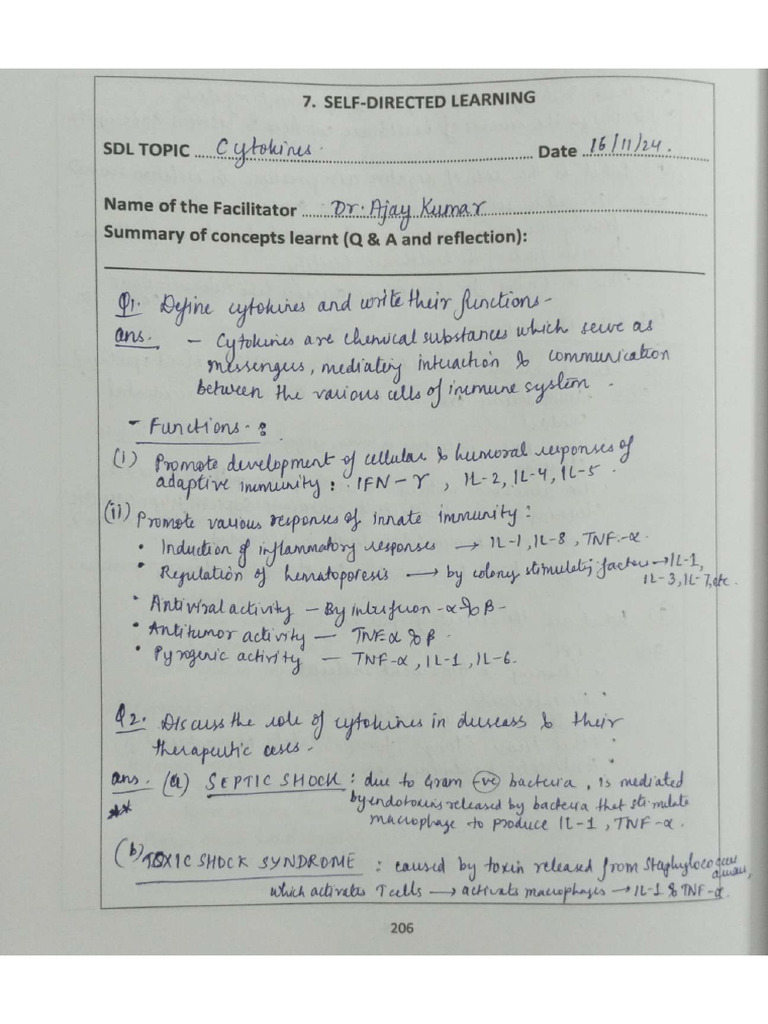 7. SELF-DIRECTED LEARNING
SDL TOPIC ... Cytokines. ... Date 16/11/24.
Name of the Facilitator ... Dr. Ajay Kumar
Summary of concepts learnt (Q & A and reflection):
Q1. Define cytokines and write their functions -
ans. - Cytokines are chemical substances which serve as
messengers, mediating interaction & communication
between the various cells of immune system.
- Functions - :
(i) Promote development of cellular & humoral responses of
adaptive immunity : IFN - γ , IL-2, IL-4, IL-5.
(ii) Promote various responses of innate immunity :
• Induction of inflammatory responses → IL-1, IL-8, TNF-α.
• Regulation of hematoporesis → by colony stimulating factor → IL-1,
IL-3, IL-7, etc.
• Antiviral activity - By interferon -α & β -
• Antitumor activity - TNF-α & β.
• Pyrogenic activity - TNF-α, IL-1, IL-6.
Q2. Discuss the role of cytokines in diseases & their
therapeutic uses -
ans. (a) SEPTIC SHOCK : due to Gram -ve bacteria, is mediated
** by endotoxins released by bacteria that stimulate
macrophage to produce IL-1, TNF-α.
(b) TOXIC SHOCK SYNDROME : caused by toxin released from Staphylococcus
aureus,
which activates T cells → activates macrophages → IL-1 & TNF-α.
206